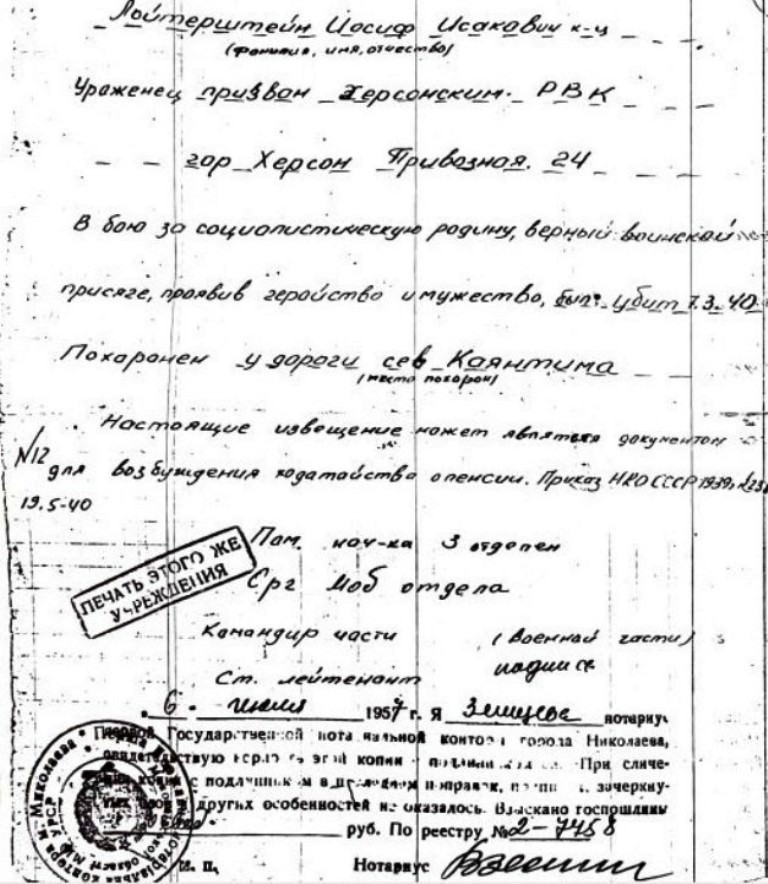 Лойтерштейн Иосиф Исакович к-ц
(фамилия, имя, отчество)
Ураженец призван Херсонским. РВК
гор Херсон Привозная. 24
В бою за социалистическую родину, верный воинской
присяге, проявив геройство и мужество, был убит 7.3.40
Похаронен у дороги сев Каянтима
(место похорон)
Настоящие извещение может являтся документом
№12
для возбуждения ходатайства о пенсии. Приказ НКО СССР 1939г.
19.5-40
Пом. нач-ка 3 отделен
Срг Моб отдела
ПЕЧАТЬ ЭТОГО ЖЕ
УЧРЕЖДЕНИЯ
Командир части (военной части)
Ст. лейтенант подписи
6. 1957 г. Я нотариус
Первой Государственной нотариальной конторы города Николаева,
свидетельствую верность этой копии с подлинником. При сличе-
нии копии с подлинником в последнем поправок, зачеркну-
других особенностей не оказалось. Взыскано госпошлины
руб. По реестру № 2-7458
М. П. Нотариус